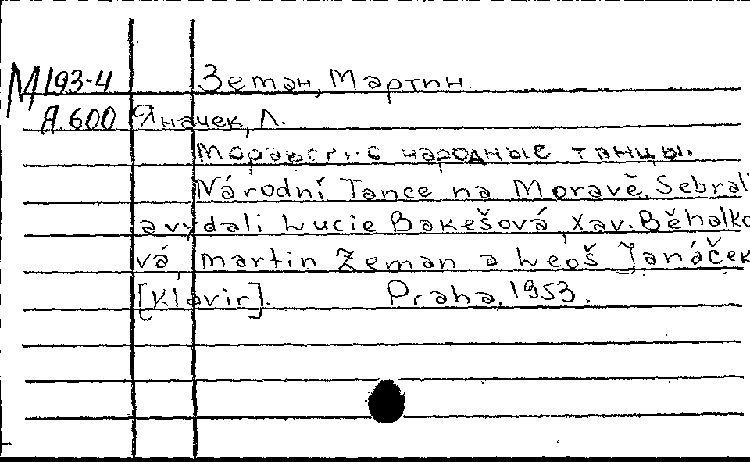 М 193-4 Земан, Мартин
Я.600 Яначек, Л.
Моравские народные танцы.
Národní Tance na Moravě. Sebrali
a vydali Lucie Bakešová, Xav. Běhalko
vá, Martin Zeman a Leoš Janáček
[Klavir]. Praha, 1953.